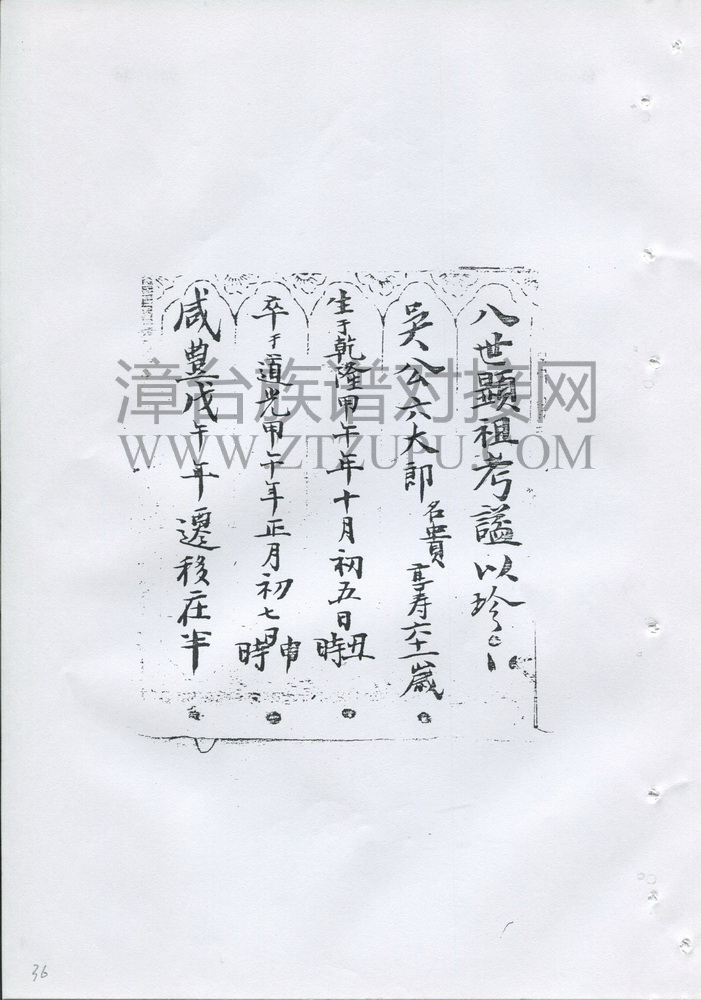 八世顯祖考謚以珍
吳公六大郎名貴享寿六十一歲
生于乾隆甲午年十月初五日丑時
卒于道光甲午年正月初七日申時
咸豊戊午年遷移在半
漳台族谱对接网
WWW.ZTZUPU.COM
36